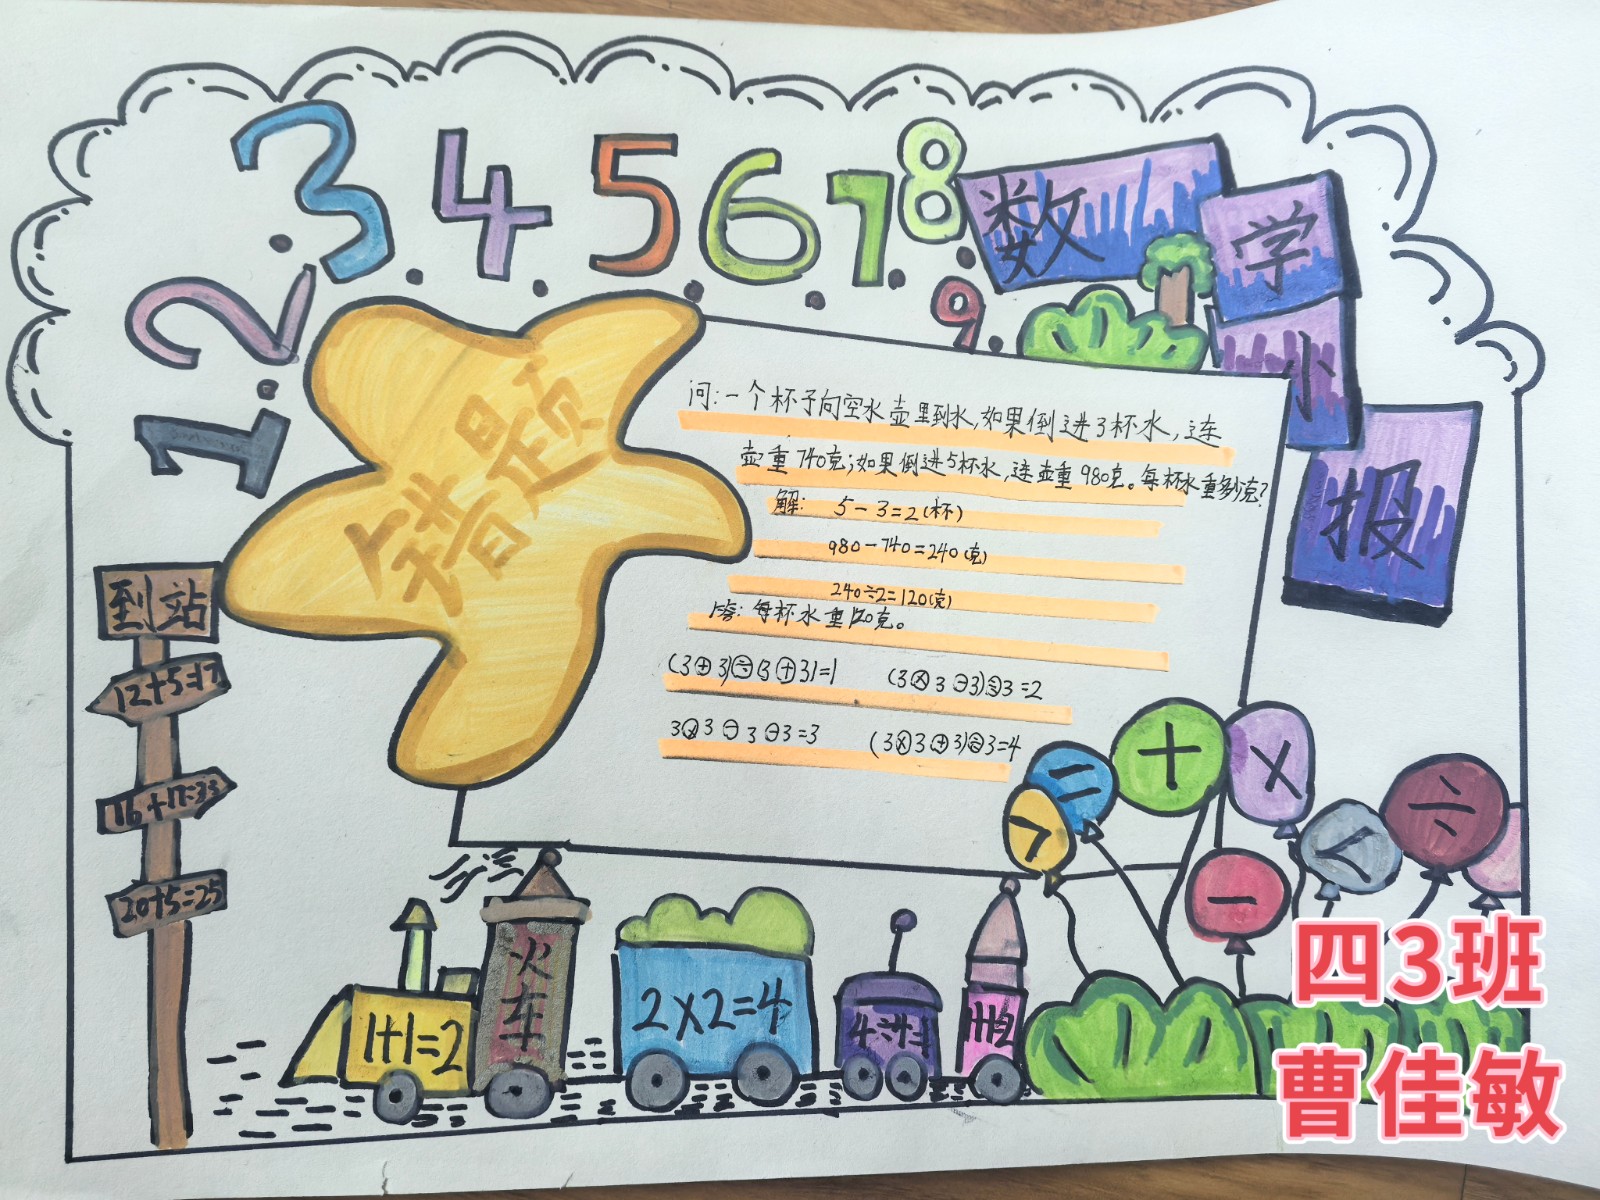 1.2.3.4.5.6.7.8.9.
数学小报
错题
问:一个杯子向空水壶里到水,如果倒进3杯水,连
壶重740克;如果倒进5杯水,连壶重980克。每杯水重多少克?
解: 5-3=2(杯)
980-740=240(克)
240÷2=120(克)
答:每杯水重120克。
(3+3)÷(3+3)=1 (3×3-3)÷3=2
3×3-3-3=3 (3×3+3)÷3=4
到站
12+5=17
16+17=33
20+5=25
= + ×
> < ÷
-
火车
1+1=2 2×2=4 4÷4=1 1+1=2
四3班
曹佳敏